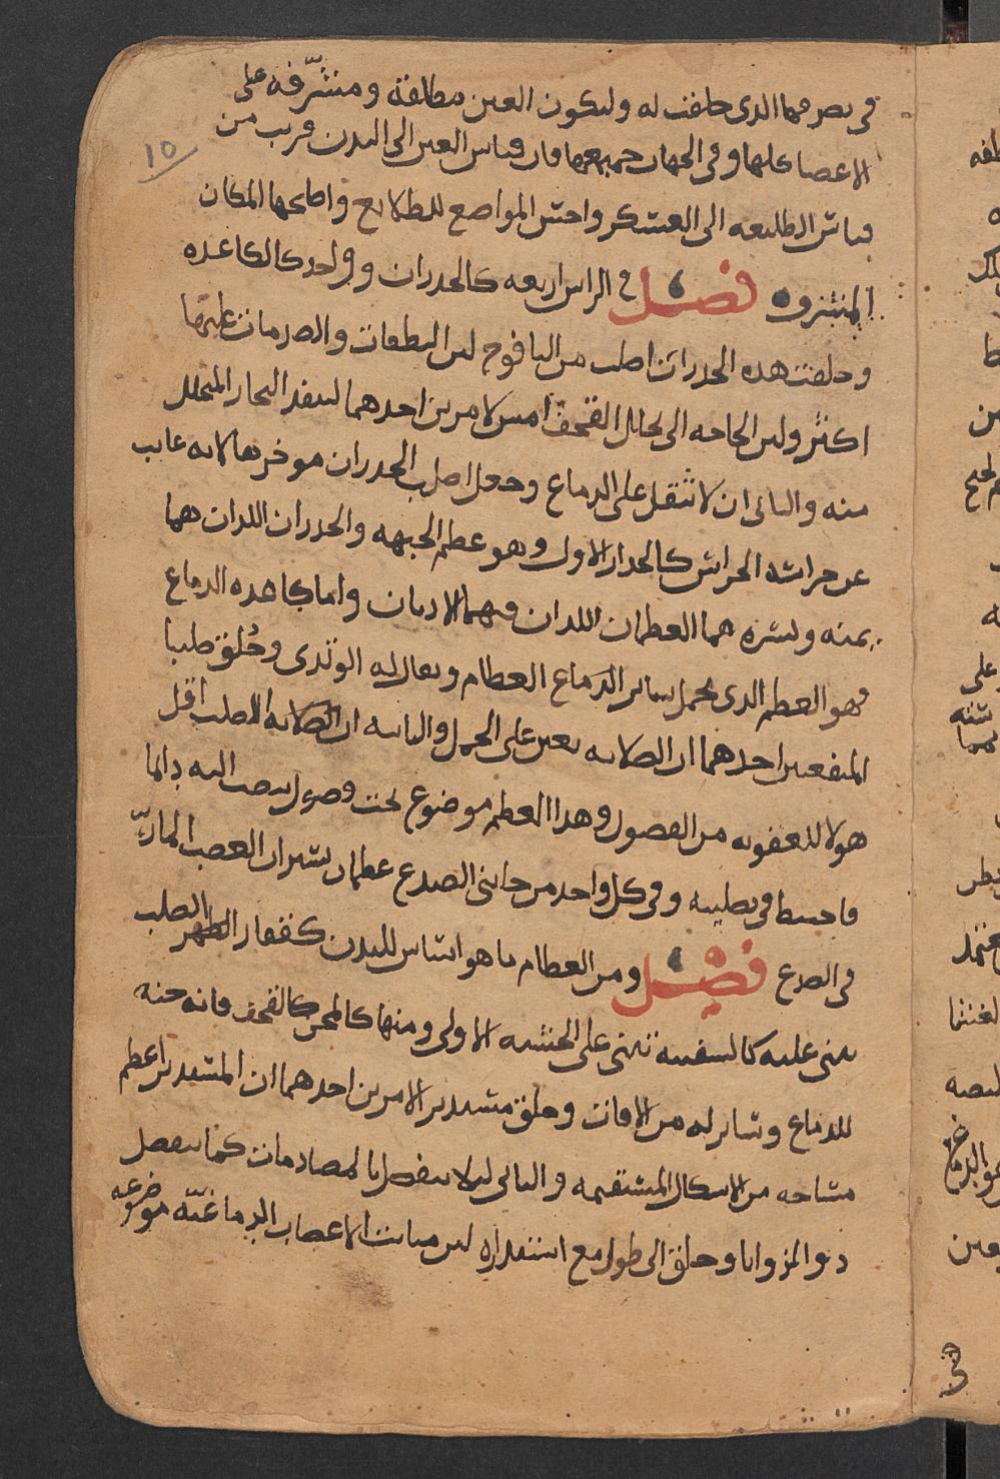 ١٥
في تصرفها الذي خلقت له وليكون العين مطالقة ومتشرّفة على
الاعضا كلها وفي الجهات جميعها فان قياس العين الى البدن قريب من
قياس الطليعه الى العسكر واحسن المواضع للطلايع واصلحها المكان
المشرف فصل في الراس اربعه كالجدران وواحد كالقاعده
وخلقت هذه الجدرات اصلب من اليافوخ لان السقطات والصدمات عليها
اكثر ولان الحاجه الى تخلل القحف امس لامرين احدهما لينفذ البخار المتحلل
منه والثاني ان لا تثقل على الدماغ وجعل اصلب الجدران موخرها لانه غايب
عن حراسة الحواس كالجدار الاول وهو عظم الجبهه والجدران اللذان هما
يمنه ويسره هما العظمان اللذان فيهما الاذنان واما قاعده الدماغ
فهو العظم الذي يحمل ساير الدماغ العظام ويقال له الوتدي وخُلق صلبا
لمنفعتين احدهما ان الصلابه تعين على الحمل والثانيه ان الصلابه الاصلب اقل
قبولا للعفونه من الفضول وهذا العظم موضوع تحت فضول تنصب اليه دايما
فاحتيط في تصليبه وفي كل واحد من جانبي الصدغ عظمان يستران العصب المارّ
في الصدغ فصل ومن العظام ما هو اساس للبدن كفقار الظهر الصلب
يبنى عليه كالسفينه تبنى على الخشبه الاولى ومنها كالمجن كالقحف فانه جنه
للدماغ وساتر له من الافات وخلق مستدير لامرين احدهما ان المستدير اعظم
مساحه من الاشكال المستقيمه والثاني ليلا ينفعل بالمصادمات كما ينفعل
ذو الزوايا وخلق الى طول مع استداره لان منابت الاعصاب الدماغيّه موضوعه